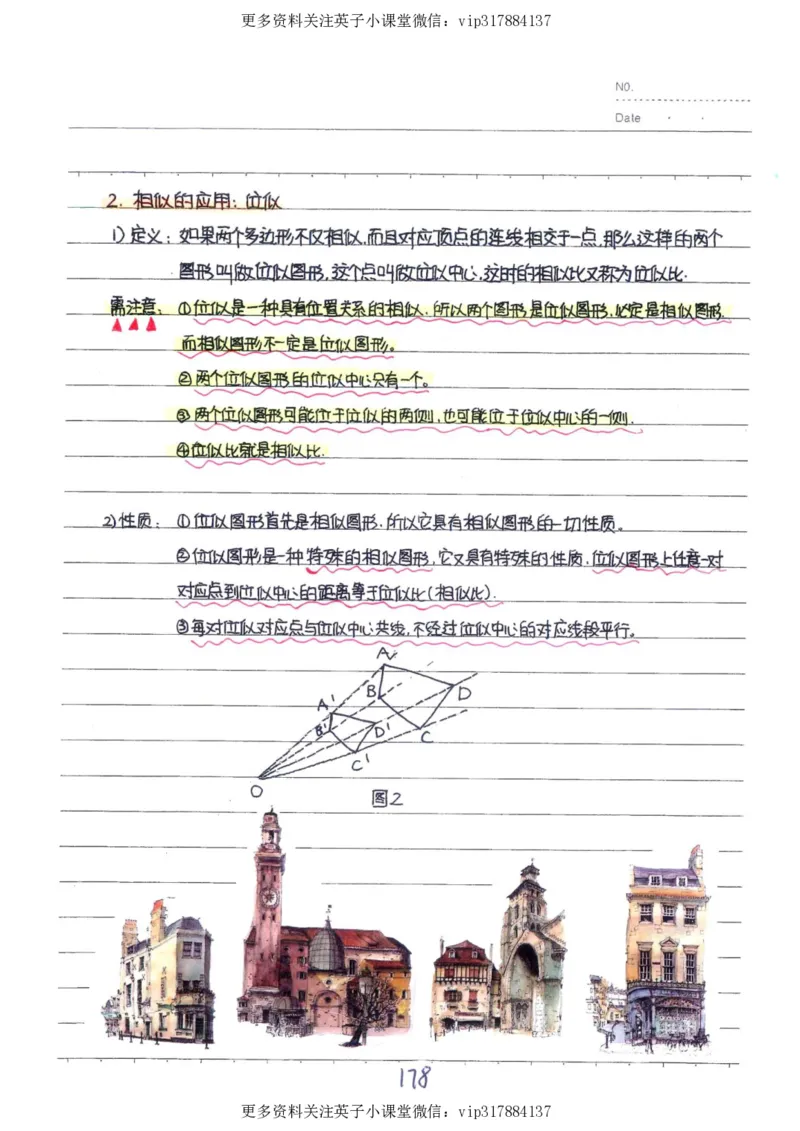 更多资料关注英子小课堂微信：vip317884137
NO.
Date
2. 相似的应用：位似
1) 定义：如果两个多边形不仅相似,而且对应顶点的连线相交于一点,那么这样的两个
图形叫做位似图形,这个点叫做位似中心,这时的相似比又称为位似比.
需注意：①位似是一种具有位置关系的相似.所以两个图形是位似图形,必定是相似图形,
而相似图形不一定是位似图形。
②两个位似图形的位似中心只有一个。
③两个位似图形可能位于位似的两侧,也可能位于位似中心的一侧.
④位似比就是相似比.
2) 性质：①位似图形首先是相似图形.所以它具有相似图形的一切性质。
②位似图形是一种特殊的相似图形,它又具有特殊的性质.位似图形上任意一对
对应点到位似中心的距离等于位似比(相似比).
③每对位似对应点与位似中心共线,不经过位似中心的对应线段平行。
A
B D
A'
B' D' C
C'
O
图2
178
更多资料关注英子小课堂微信：vip317884137